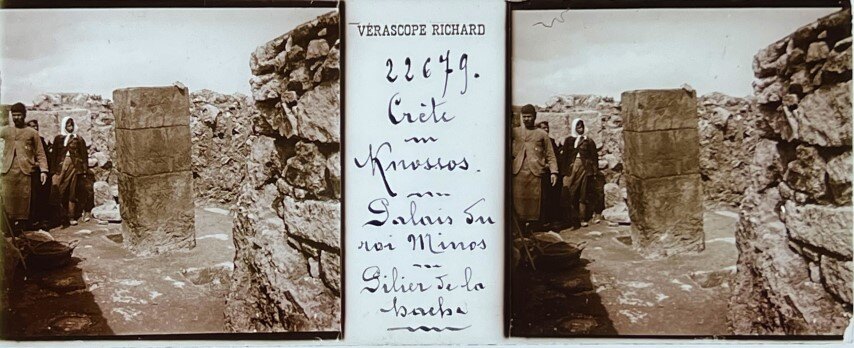 VÉRASCOPE RICHARD
22679.
Crête
Knossos.
Palais du
roi Minos
Pilier de la
hache